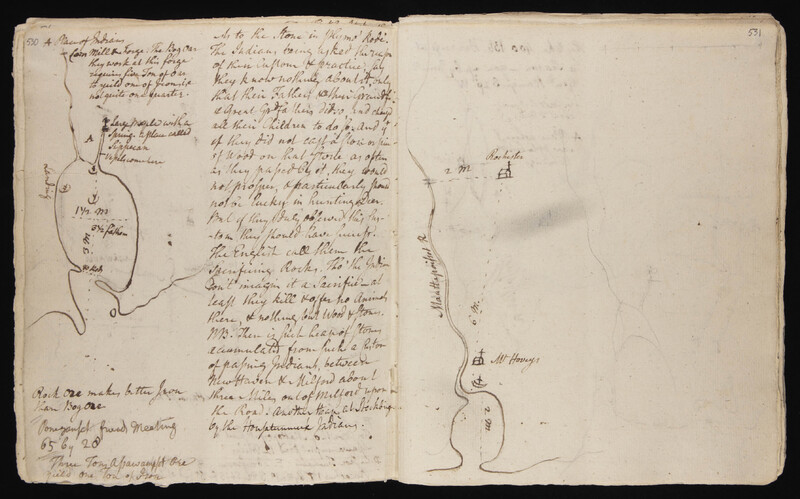 530
A Place of Indians
Corn Mill & Forge. The Bog Ore
they work at this forge
requires five Ton of Ore
to yield one of
not quite one quarter.
with a
Spring & place called
A
Landing
1 1/2 M
5 1/2 fathom
3 M
Rock Ore makes better Iron
than Bog Ore
friends Meeting
65 by 28
Three Tons Assawampsit Ore
yield one Ton of Iron
As to the Stone in Plymo' Road.
The Indians being asked the reason
of their Custom & Practice, say
they know nothing about it, only
that their Fathers & their Grandfa
& Great Grdfathers did so, and charg'd
all their Children to do so; And y't
if they did not cast a Stone or piece
of Wood on that Stone as often
as they passed by it, they would
not prosper, & particularly should
not be lucky in hunting Deer.
But if they duly observed this Cus-
-tom they should have success.
The English call them the
Sacrificing Rocks. Tho' the Indians
don't imagine it a Sacrifice at
least they kill & offer no Animals
there, & nothing but Wood & Stones.
NB. There is such heap of Stones
accumulated from such a Custom
of passing Indians, between
New Haven & Milford about
three Miles out of Milford upon
the Road. Another Heap at Stockbridge
by the Housatunnuck Indians.
531
Rochester
2 M
Mattapoisett R
6 M
Mr Hoveys
2 M